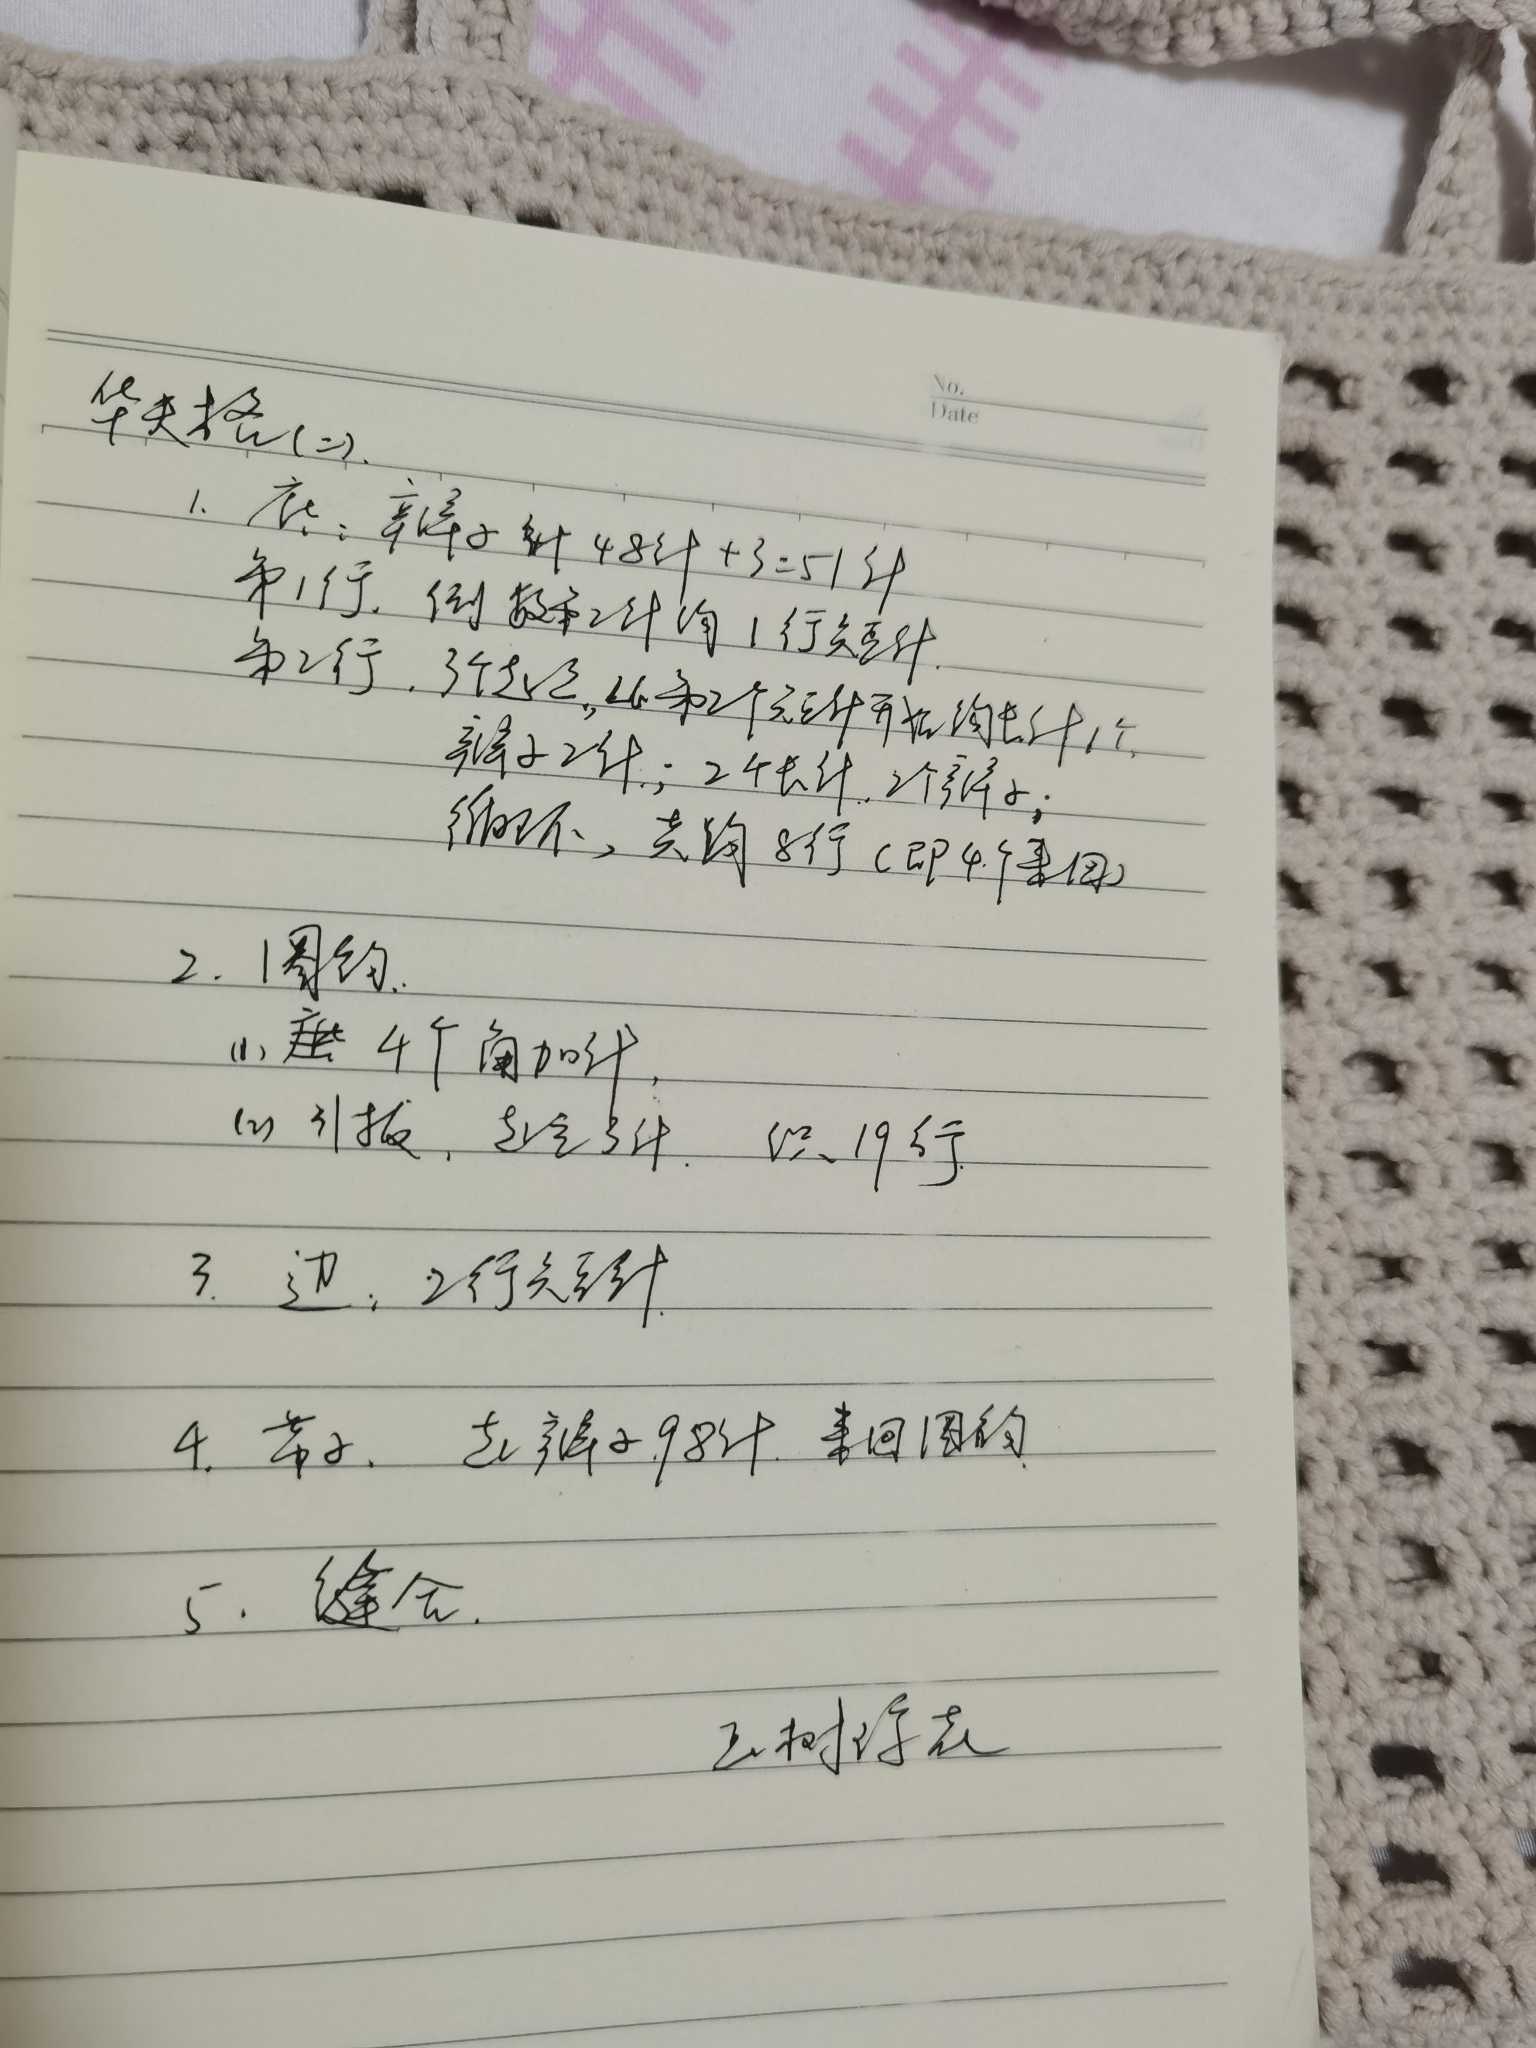 No.
Date
华夫格(二).
1. 底: 辫子针 48针+3=51针
第1行. 倒数第2针钩1行短针.
第2行. 3个起立, 从第2个短针开始钩长针1个.
辫子2针; 2个长针. 2个辫子;
循环, 共钩8行(即4个来回)
2. 圈钩.
(1) 底4个角加针,
(2) 引拔, 起立3针. 织19行.
3. 边: 2行短针.
4. 带子. 起辫子98针. 来回圈钩.
5. 缝合.
玉树